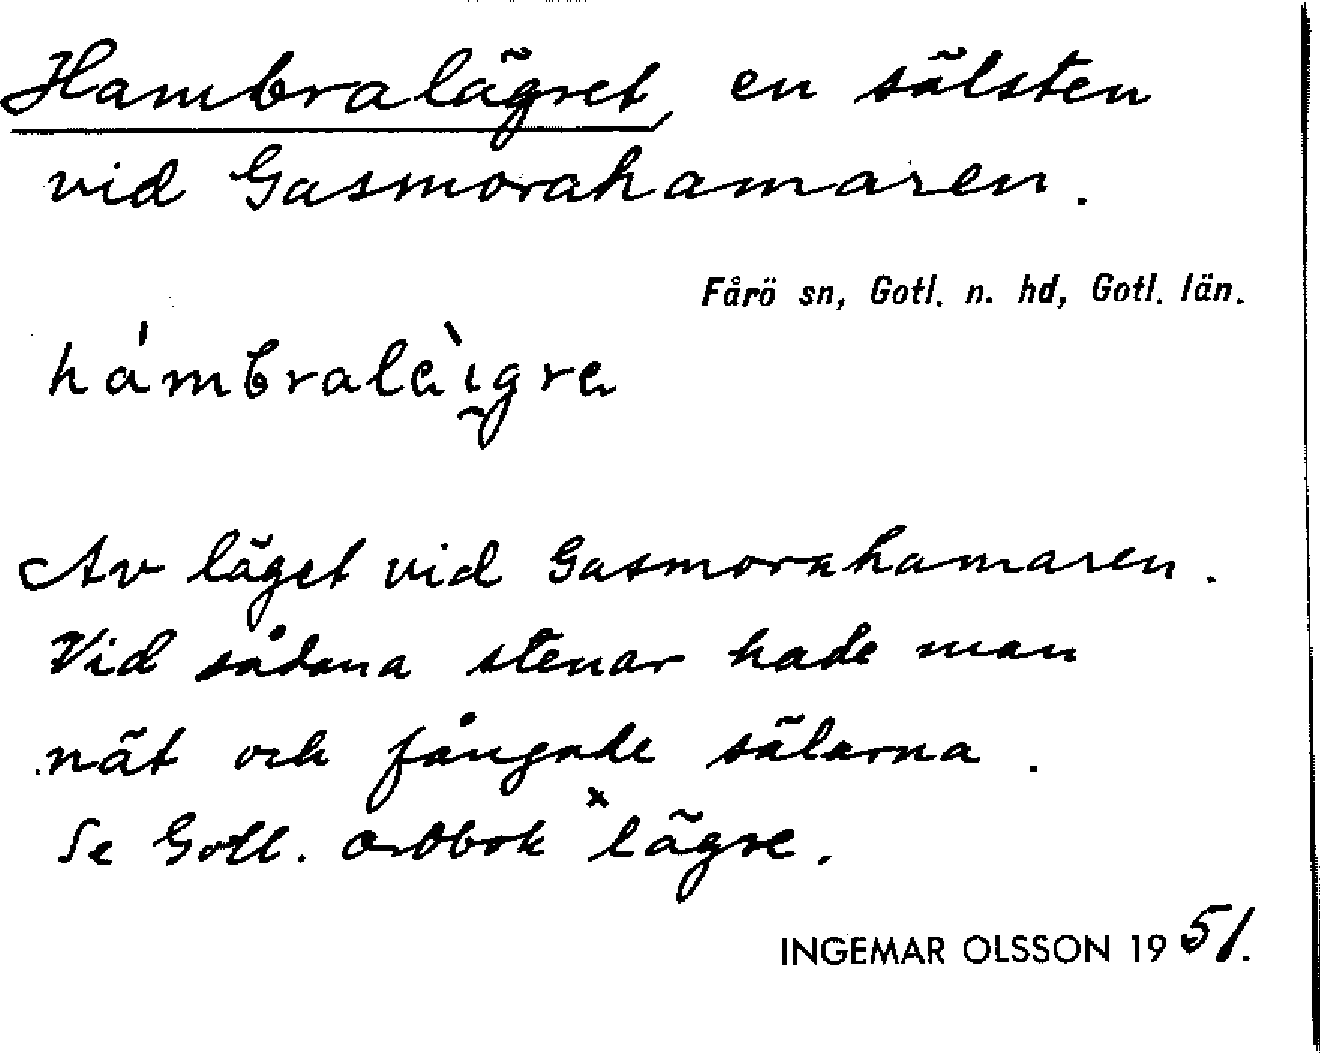 Hambralägret, en sälsten
vid Gasmorahamaren.
Fårö sn, Gotl. n. hd, Gotl. län.
há'mbralàigre
Av läget vid Gasmorahamaren.
Vid sådana stenar hade man
nät och fångade sälarna.
Se Gotl. ordbok ˣlägre.
INGEMAR OLSSON 1951.